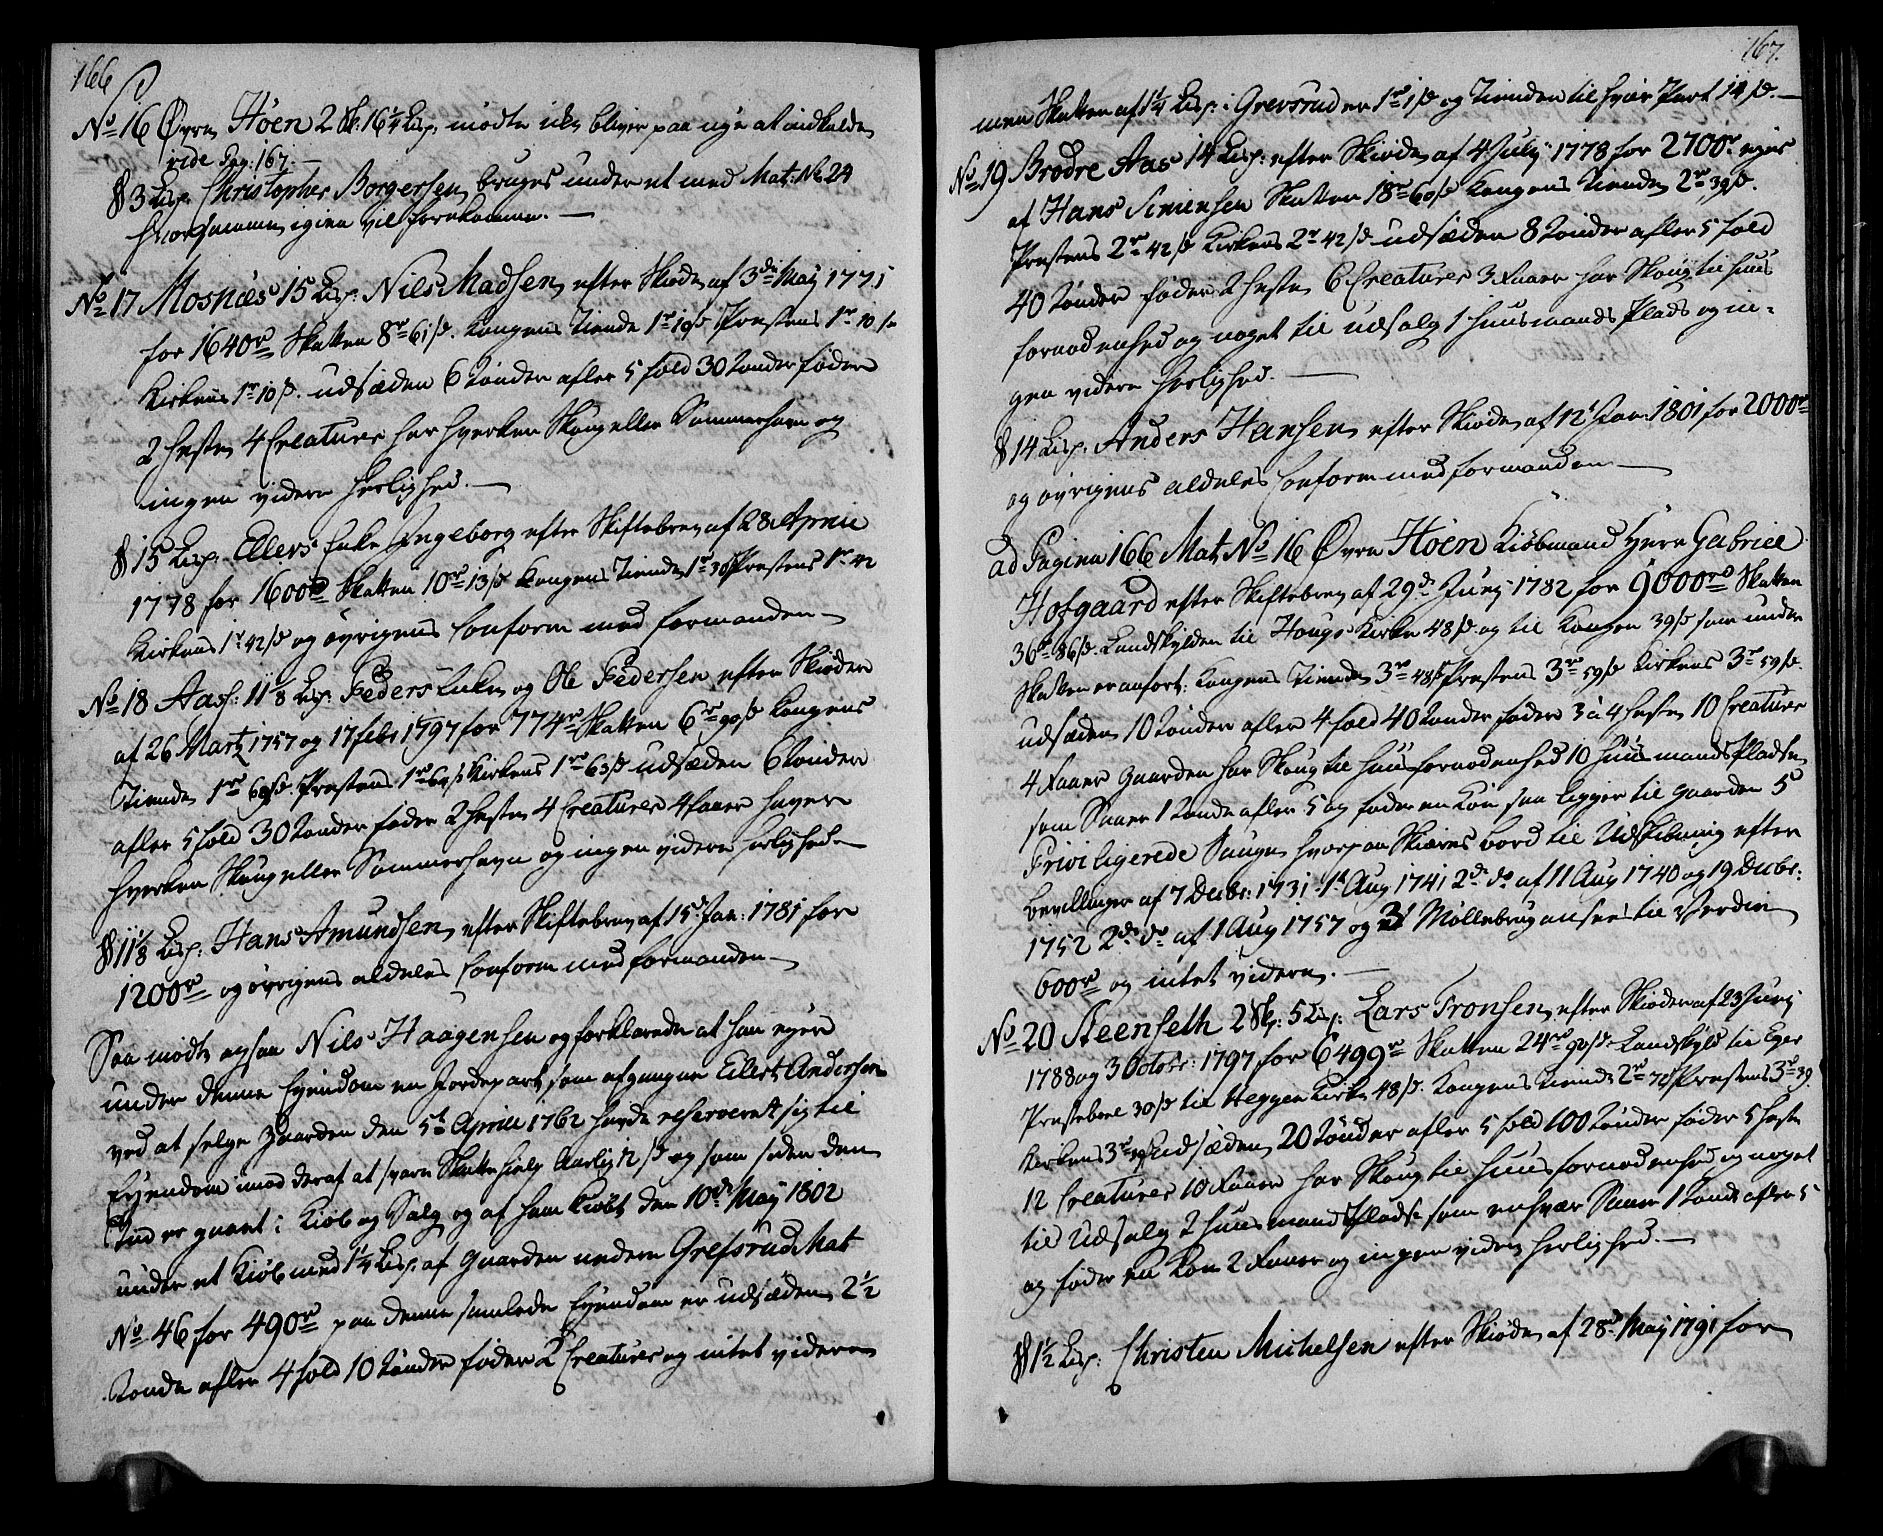 166
No 16 Øvre Hoen 2 Sk. 16¼ Lisp. mødte ikke bliver paa nye at indkalde
vide Pag: 167. —
§ 3 Lisp. Christopher Borgersen, bruges under et med Mat: No 24
hvor samme igien vil forekomme. —
No 17 Mosnæs 15 Lisp: Niels Madsen efter Skiøde af 3de May 1775
for 1640r Skatten 8r 61 s. Kongens Tiende 1r 19 s Præstens 1r 10 s
Kirkens 1r 10 s. udsæden 6 Tønder afler 5 fold 30 Tønder føder
2 heste 4 Creature har hverken Skoug eller Sommerhavn og
ingen videre herlighed. —
§ 15 Lisp. Ellers Enke Ingeborg efter Skiftebrev af 28 Aprill
1778 for 1600r Skatten 10r 13 s Kongens Tiende 1r 30 s Præstens 1r 42
Kirkens 1r 42 s og øvrigens Conform med formanden —
No 18 Aas: 11⅛ Lisp. Peders Enke og Ole Pedersen efter Skiøder
af 26 Martz 1757 og 17 febr 1797 for 774r Skatten 6r 90 s Kongens
Tiende 1r 69 s. Præstens 1r 69 s Kirkens 1r 63 s udsæden 6 Tønder
afler 5 fold 30 Tønder føder 2 heste 4 Creature 4 faaer haver
hverken Skoug eller Sommerhavn og ingen videre herlighed —
§ 11⅛ Lisp: Hans Amundsen efter Skiftebrev af 15d Jan: 1781 for
1200r og øvrigens aldeles Conform med formanden —
Saa mødte ogsaa Niels Haagensen og forklarede at han eyer
under denne Eyendom en Jordepart, som afgangne Eilert Andersen
ved at selge gaarden den 5te Aprill 1762 havde reserveret sig til
Eyendom imod deraf at svare Skattehielp Aarlig 12 s og som siden den
Tid er gaaet i Kiøb og Salg og af ham Kiøbt den 10de May 1802
under et Kiøb med 1¼ Lisp. af Gaarden nedere Grefsrud Mat
No 46 for 490r paa denne samlede Eyendom er udsæden 2½
Tønde afler 4 fold 10 Tønder føder 2 Creature og intet videre
167.
men Skatten af 1¼ Lisp. i Grevsrud er 1r 1 s og Tienden til hver Part 14 s. —
No 19 Brødre Aas 14 Lisp: efter Skiøde af 4 July 1778 for 2700r eyes
af Hans Simensen Skatten 18r 60 s Kongens Tiende 2r 39 s.
Præstens 2r 42 s Kirkens 2r 42 s udsæden 8 Tønder afler 5 fold
40 Tønder føder 2 heste 6 Creature 3 Faaer har Skoug til huus
fornødenhed og noget til udsalg 1 huusmands Plads og in-
gen videre herlighed. —
§ 14 Lisp. Anders Hansen efter Skiøde af 12t Jan: 1801 for 2000r
og øvrigens aldeles Conform med formanden —
ad Pagina 166 Mat No 16 Øvre Hoen Kiøbmand Herr Gabriel
Hofgaard efter Skiftebrev af 29d Juny 1782 for 9000r Skatten
36r 86 s. Landskylden til Hougs Kirke 48 s og til Kongen 39 s som under
Skatten er anført: Kongens Tiende 3r 48 s Præstens 3r 59 s Kirkens 3r 59 s.
udsæden 10 Tønder afler 4 fold 40 Tønder føder 3 à 4 heste 10 Creature
4 Faaer Gaarden har Skoug til huusfornødenhed 10 huusmands Pladse
som Saaer 1 Tønde afler 5 og føder en Koe saa ligger til gaarden 5
Priviligerede Sauge hvorpaa Skiæres bord til Udskibning efter
bevillinger af 7 Decbr: 1731. 1t Aug 1741 2de do af 11 Aug 1740 og 19 Decbr:
1752 2de do af 1 Aug 1757 og 3t Møllebrug ansees til Værdie
600r og intet videre. —
No 20 Steenseth 2 Sk: 5 Lisp: Lars Tronsen efter Skiøder af 23 Juny
1788 og 3 Octobr: 1797 for 6499r Skatten 24r 90 s Landskyld til Eger
Præstebole 30 s til Heggen Kirke 48 s. Kongens Tiende 2r 72 s Præstens 3r 39
Kirkens 3r 39 s Udsæden 20 Tønder afler 5 fold 100 Tønder føder 5 heste
12 Creature 10 Faaer har Skoug til huusfornødenhed og noget
til Udsalg 2 huusmands Pladse som enhvær Saaer 1 Tønde afler 5
og føder en Koe 2 Faaer og ingen videre herlighed. —
§ 1½ Lisp: Christen Michelsen efter Skiøde af 28de May 1791 for